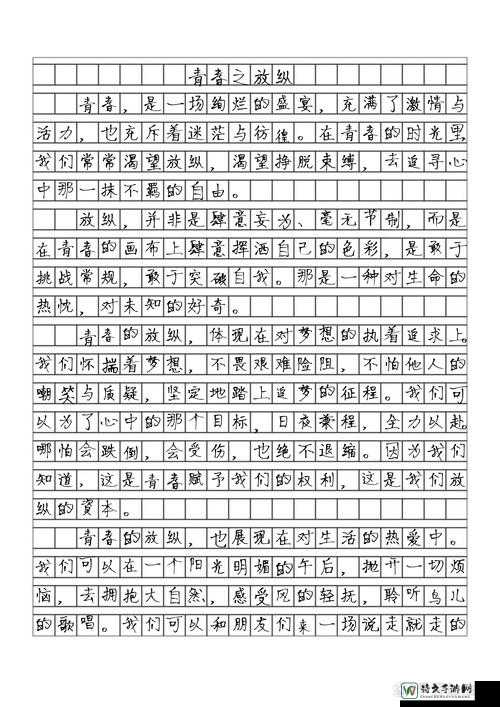 青春之放纵
青春，是一场绚烂的盛宴，充满了激情与
活力，也充斥着迷茫与彷徨。在青春的时光里，
我们常常渴望放纵，渴望挣脱束缚，去追寻心
中那一抹不羁的自由。
放纵，并非是肆意妄为、毫无节制，而是
在青春的画布上肆意挥洒自己的色彩，是敢于
挑战常规，敢于突破自我。那是一种对生命的
热忱，对未知的好奇。
青春的放纵，体现在对梦想的执着追求上。
我们怀揣着梦想，不畏艰难险阻，不怕他人的
嘲笑与质疑，坚定地踏上追梦的征程。我们可
以为了心中的那个目标，日夜兼程，全力以赴。
哪怕会跌倒，会受伤，也绝不退缩。因为我们
知道，这是青春赋予我们的权利，这是我们放
纵的资本。
青春的放纵，也展现在对生活的热爱中。
我们可以在一个阳光明媚的午后，抛开一切烦
恼，去拥抱大自然，感受风的轻抚，聆听鸟儿
的歌唱。我们可以和朋友们来一场说走就走的